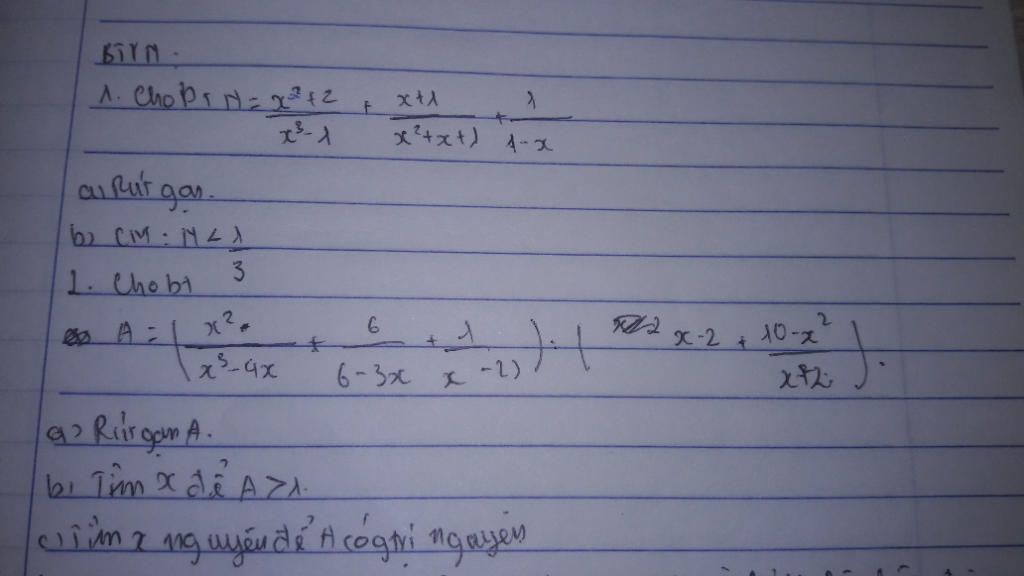 BTVN.
1. Cho bt N = x²+2 / x³-1 + x+1 / x²+x+1 + 1 / 1-x
a) Rút gọn.
b) CM : N < 1/3
2. Cho bt
A = ( x² / x³-4x + 6 / 6-3x + 1 / x-2 ) : ( x-2 + 10-x² / x+2 ).
a) Rút gọn A.
b) Tìm x để A > 1.
c) Tìm x nguyên để A có gtrị nguyên